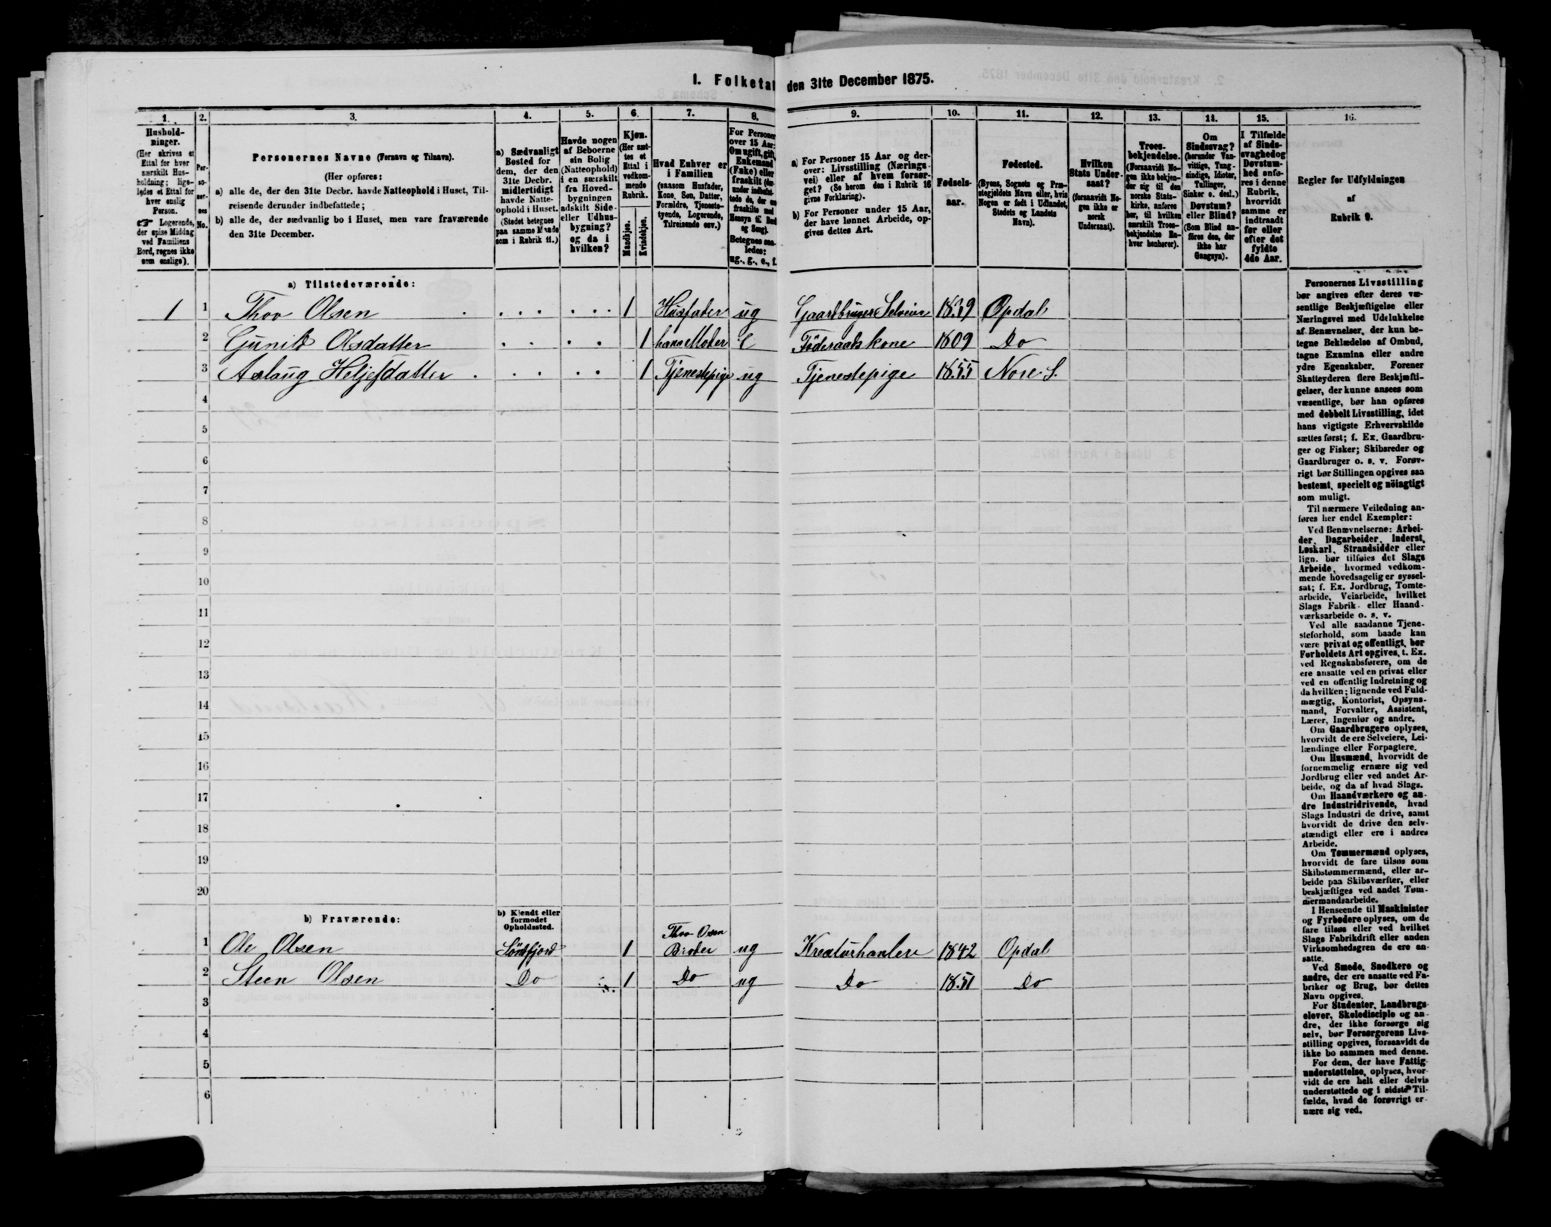 I. Folketal den 31te December 1875.
1. 2. 3. 4. 5. 6. 7. 8. 9. 10. 11. 12. 13. 14. 15. 16.
Hushold-
ninger.
(Her skrives et
Ettal for hver
særskilt Hus-
holdning; lige-
ledes et Ettal for
hver enslig
Person.
Logerende,
der spise Middag
ved Familiens
Bord, regnes ikke
som enslige).
Per-
so-
ner-
nes
No.
Personernes Navne (Fornavn og Tilnavn).
(Her opføres:
a) alle de, der den 31te Decbr. havde Natteophold i Huset, Til-
reisende derunder indbefattede;
b) alle de, der sædvanlig bo i Huset, men vare fraværende
den 31te December.
a) Sædvanligt
Bosted for
dem, der den
31te Decbr.
midlertidigt
havde Natte-
ophold i Huset.
(Stedet betegnes
paa samme Maade
som i Rubrik 11.)
Havde nogen
af Beboerne
sin Bolig
(Natteophold)
i en særskilt
fra Hoved-
bygningen
adskilt Side-
eller Udhus-
bygning?
og da i
hvilken?
Kjøn.
(Her sæt-
tes et
Ettal i
vedkom-
mende
Rubrik.
Mandkjøn.
Kvindekjøn.
Hvad Enhver er
i Familien
(saasom Husfader,
Kone, Søn, Datter,
Forældre, Tjeneste-
tyende, Logerende,
Tilreisende osv.)
For Personer
over 15 Aar:
Om ugift, gift,
Enkemand
(Enke) eller
fraskilt
Betegnes saa-
ledes:
ug., g., e., f.
a) For Personer 15 Aar og der-
over: Livsstilling (Nærings-
vei) eller af hvem forsør-
get? (Se herom den i Rubrik 16
givne Forklaring).
b) For Personer under 15 Aar,
der have lønnet Arbeide, op-
gives dettes Art.
Fødsels-
aar.
Fødested.
(Byens, Sognets og Præ-
stegjeldets Navn eller, hvis
Nogen er født i Udlandet,
Stedets og Landets
Navn).
Hvilken
Stats Under-
saat?
(forsaavidt No-
gen ikke er
norsk
Undersaat).
Troes-
bekjendelse.
(Forsaavidt No-
gen ikke bekjen-
der sig til den
norske Stats-
kirke, anføres
her, til hvilken
særskilt Troes-
bekjendelse En-
hver henhører).
Om
Sindssvag?
(herunder Van-
vittige, Tung-
sindige, Idioter,
Tullinger,
Sinker o. desl.)
Døvstum?
eller Blind?
(Som Blind an-
føres den, der
ikke har
Gangsyn).
I Tilfælde
af Sinds-
svaghed og
Døvstum-
hed anfø-
res i denne
Rubrik,
hvorvidt
samme er
indtraadt
før eller
efter det
fyldte
4de Aar.
Regler for Udfyldningen
af
Rubrik 9.
a) Tilstedeværende:
1 1 Thov Olsen 1 Husfader ug Gaardbruger Selveier 1839 Opdal
2 Gunild Olsdatter 1 hans Moder E Föderaadskone 1809 Do
3 Aslaug Heljesdatter 1 Tjenestepige ug Tjenestepige 1855 Nore S.
4
5
6
7
8
9
10
11
12
13
14
15
16
17
18
19
20
b) Fraværende:
b) Kjendt eller
formodet
Opholdssted.
1 Ole Olsen Söndfjord 1 Thov Olsen Broder ug Kreaturhanlere 1842 Opdal
2 Steen Olsen Do 1 Do ug Do 1851 Do
3
4
5
6
Personernes Livsstilling
bør angives efter deres væ-
sentlige Beskjæftigelse eller
Næringsvei med Udelukkelse
af Benævnelser, der kun be-
tegne Beklædelse af Ombud,
tagne Examina eller andre
ydre Egenskaber. Forener
Skatteyderen flere Beskjæfti-
gelser, der kunne ansees som
væsentlige, bør han opføres
med dobbelt Livsstilling, idet
hans vigtigste Erhvervskilde
sættes først; f. Ex. Gaardbru-
ger og Fisker; Skibsreder og
Gaardbruger o. s. v. Forøv-
rigt bør Stillingen opgives saa
bestemt, specielt og nöiagtigt
som muligt.
Til nærmere Veiledning an-
føres her endel Exempler:
Ved Benævnelserne: Arbei-
der, Dagarbeider, Inderst,
Løskarl, Strandsidder eller
lign. bør tilføies det Slags
Arbeide, hvormed vedkom-
mende hovedsagelig er syssel-
sat; f. Ex. Jordbrug, Tomte-
arbeide, Veiarbeide, hvilket
Slags Fabrik- eller Haand-
værksarbeide o. s. v.
Ved alle saadanne Tjene-
steforhold, som baade kan
være privat og offentligt, bør
Forholdets Art opgives, t. Ex.
ved Regnskabsførere, om de
ere ansatte ved en privat eller
ved en offentlig Indretning og
da hvilken; lignende ved Fuld-
mægtig, Kontorist, Opsyns-
mand, Forvalter, Assistent,
Lærer, Ingeniør og andre.
Om Gaardbrugere oplyses,
hvorvidt de ere Selveiere, Lei-
lændinge eller Forpagtere.
Om Husmænd, hvorvidt de
fornemmelig ernære sig ved
Jordbrug eller ved andet Ar-
beide, og da af hvad Slags.
Om Haandværkere og an-
dre Industridrivende, hvad
Slags Industri de drive, samt
hvorvidt de drive den selv-
stændigt eller ere i andres
Arbeide.
Om Tømmermænd oplyses,
hvorvidt de fare tilsøs som
Skibstømmermænd, eller ar-
beide paa Skibsværfter, eller
beskjæftiges ved andet Tøm-
mermandsarbeide.
I Henseende til Maskinister
og Fyrbødere oplyses, om de
fare tilsøs eller ved hvilket
Slags Fabrikdrift eller anden
Virksomhedsgren de ere an-
satte.
Ved Smede, Snedkere og
andre, der ere ansatte ved Fa-
briker og Brug, bør dettes
Navn opgives.
For Studenter, Landbrugs-
elever, Skoledisciple og an-
dre, der ikke forsørge sig
selv, bør Forsørgerens Livs-
stilling opgives, forsaavidt de
ikke bo sammen med denne.
For dem, der have Fattig-
understøttelse, oplyses, hvor-
vidt de ere helt eller delvis
understøttede og i sidste Til-
fælde, hvad de forøvrigt er-
nære sig ved.